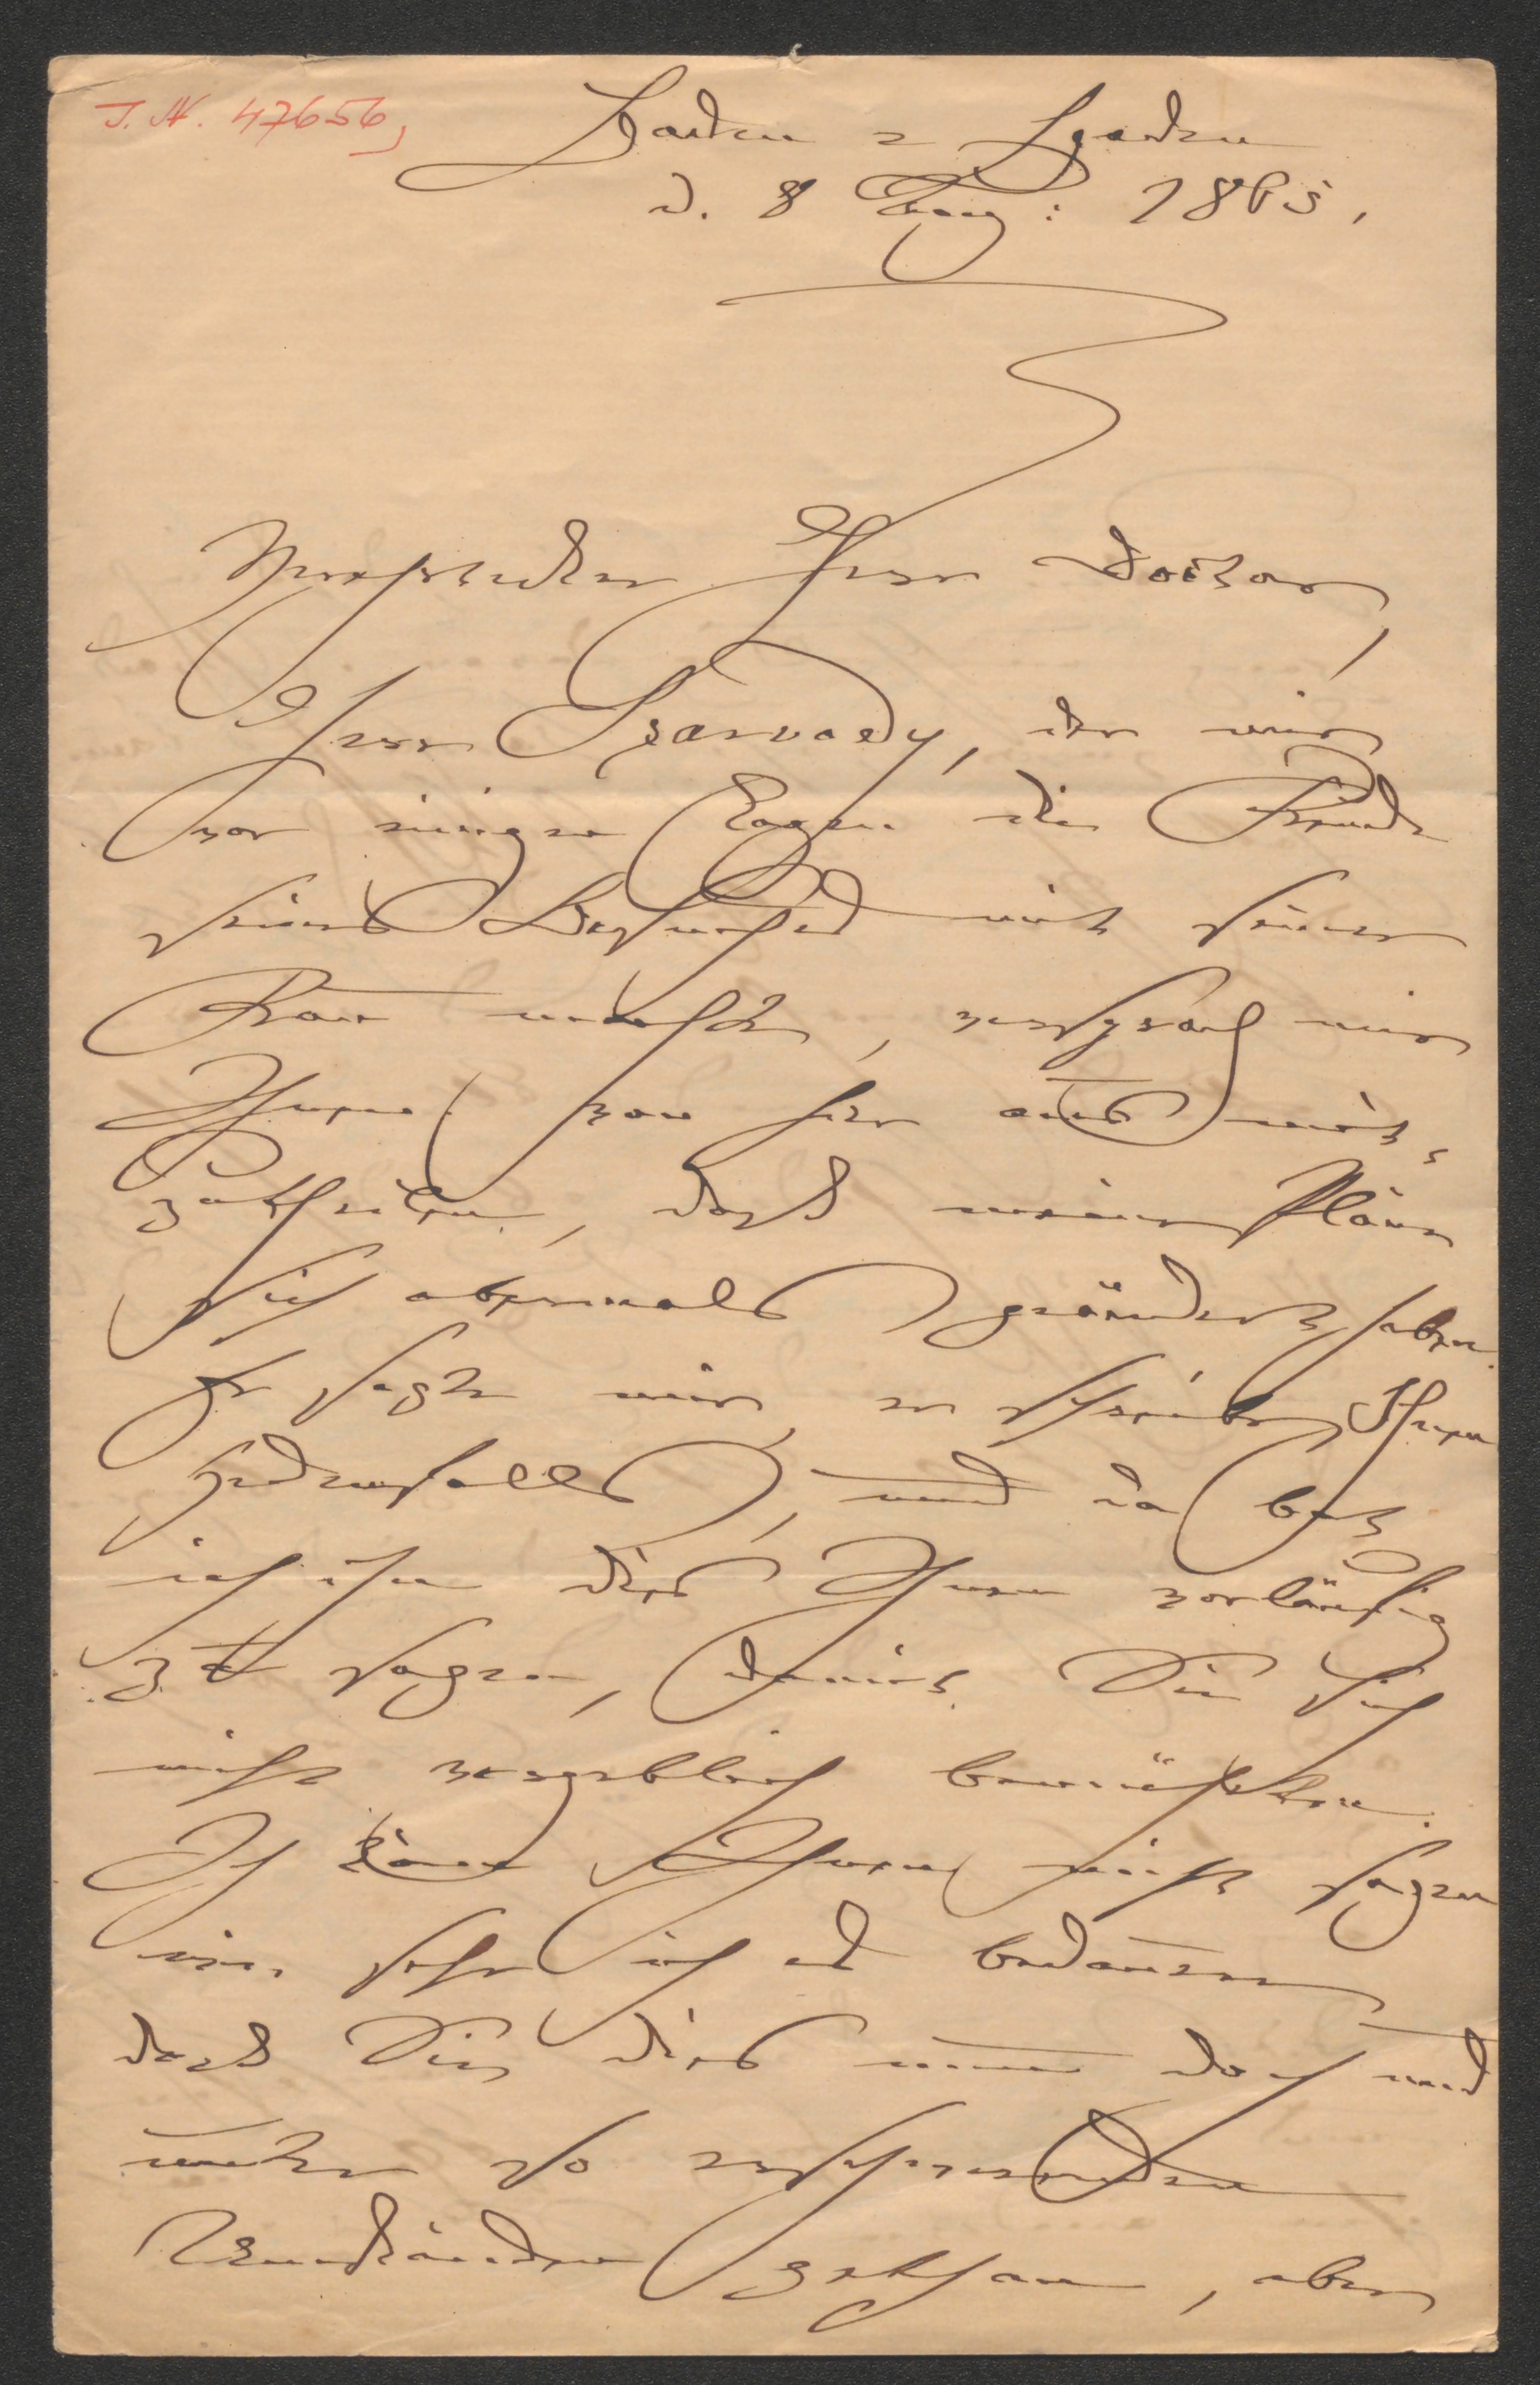 J. N. 47656
Baden = Baden
d. 8 Aug: 1865.
Verehrtester Herr Doctor,
Herr Szarvady, der mir
vor einigen Tagen die Freude
seines Besuches mit seiner
Frau machte, versprach mir
Ihnen von hier aus mit=
zutheilen, daß meine Pläne
sich abermals geändert haben.
Er sagte mir, er schreibe Ihnen
jedenfalls, und da bat
ich ihn dies Ihnen vorläufig
zu sagen, damit Sie sich
nicht vergeblich bemühten.
Ich kann Ihnen nicht sagen
wie sehr ich es bedauere
daß Sie dies nun doch und
unter so erschwerenden
Umständen gethan, aber